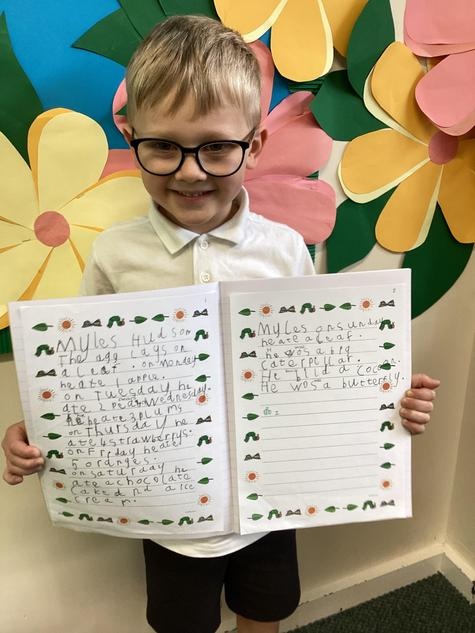 1
Myles Hudson
The agg lays on
a leaf. on Monday
he ate 1 apple.
on Tuesday he
ate 2 pears Wednesday
he ate 3 plums
on Thursday he
ate 4 strawberrys.
on Friday he ate
5 oranges.
on saturday he
ate a chocolate
cake and a ice
cream.
2
Myles on sunday
he ate a leaf.
he wos a big
caterpllar.
He bild a cocoon.
He wos a butterfly.